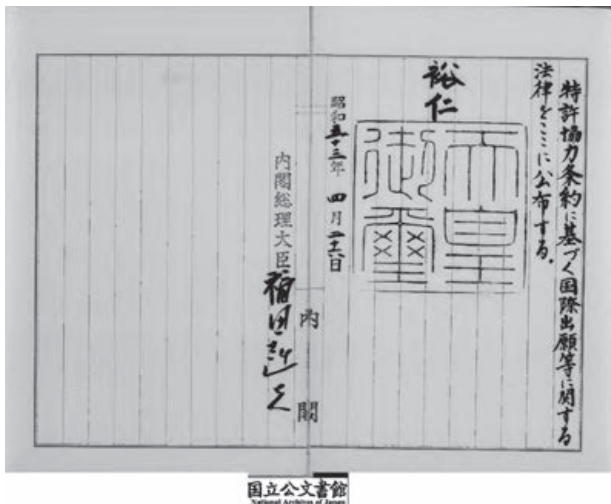 特許協力条約に基づく国際出願等に関する
法律をここに公布する。
裕仁
天皇
御璽
昭和五十三年四月二十六日
内閣総理大臣 福田赳夫
内閣
国立公文書館
National Archives of Japan